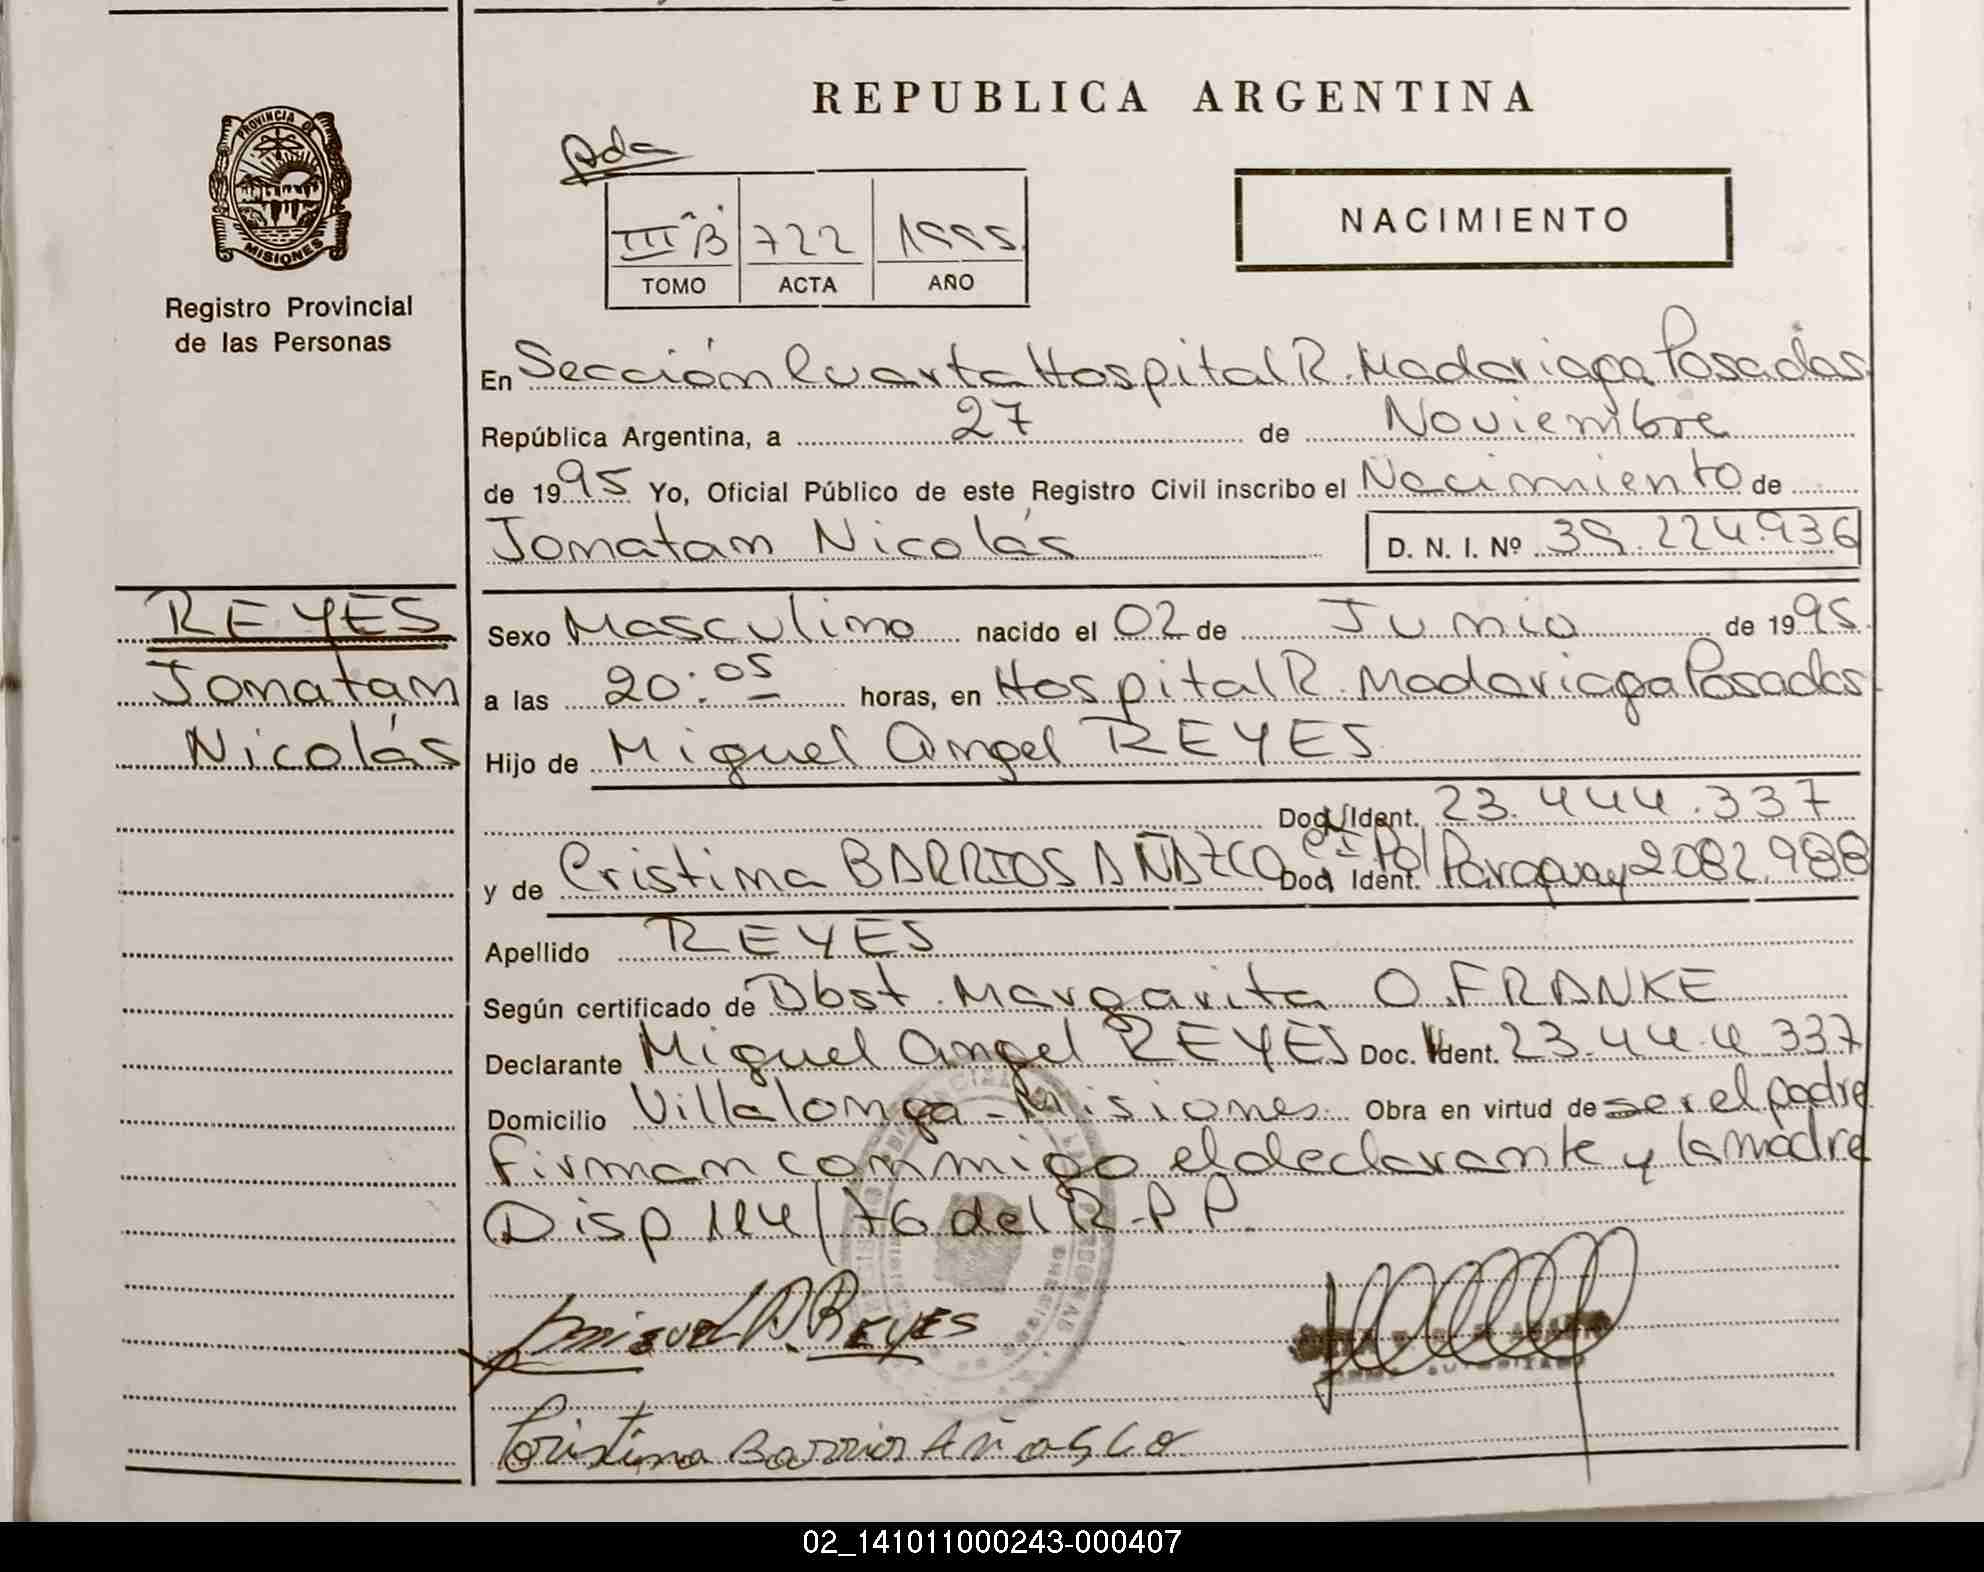 REPUBLICA ARGENTINA
PROVINCIA DE
MISIONES
Registro Provincial
de las Personas
Pda
III B 722 1995
TOMO ACTA AÑO
NACIMIENTO
En Sección Cuarta Hospital R. Madariaga Posadas
República Argentina, a 27 de Noviembre
de 1995 Yo, Oficial Público de este Registro Civil inscribo el Nacimiento de
Jonatan Nicolás D. N. I. Nº 39.224.936
REYES
Jonatan
Nicolás
Sexo Masculino nacido el 02 de Junio de 1995
a las 20:05 horas, en Hospital R. Madariaga Posadas
Hijo de Miguel Angel REYES
Doc. Ident. 23.444.337
y de Cristina BARRIOS AÑAZCO Doc. Ident. CI Pol Paraguay 2082.988
Apellido REYES
Según certificado de Obst. Margarita O. FRANKE
Declarante Miguel Angel REYES Doc. Ident. 23.444.337
Domicilio Villalonga - Misiones Obra en virtud de ser el padre
Firman conmigo el declarante y la madre
Disp 114/76 del R.P.P.
Miguel A. REYES
Cristina Barrios Añasco
02_141011000243-000407